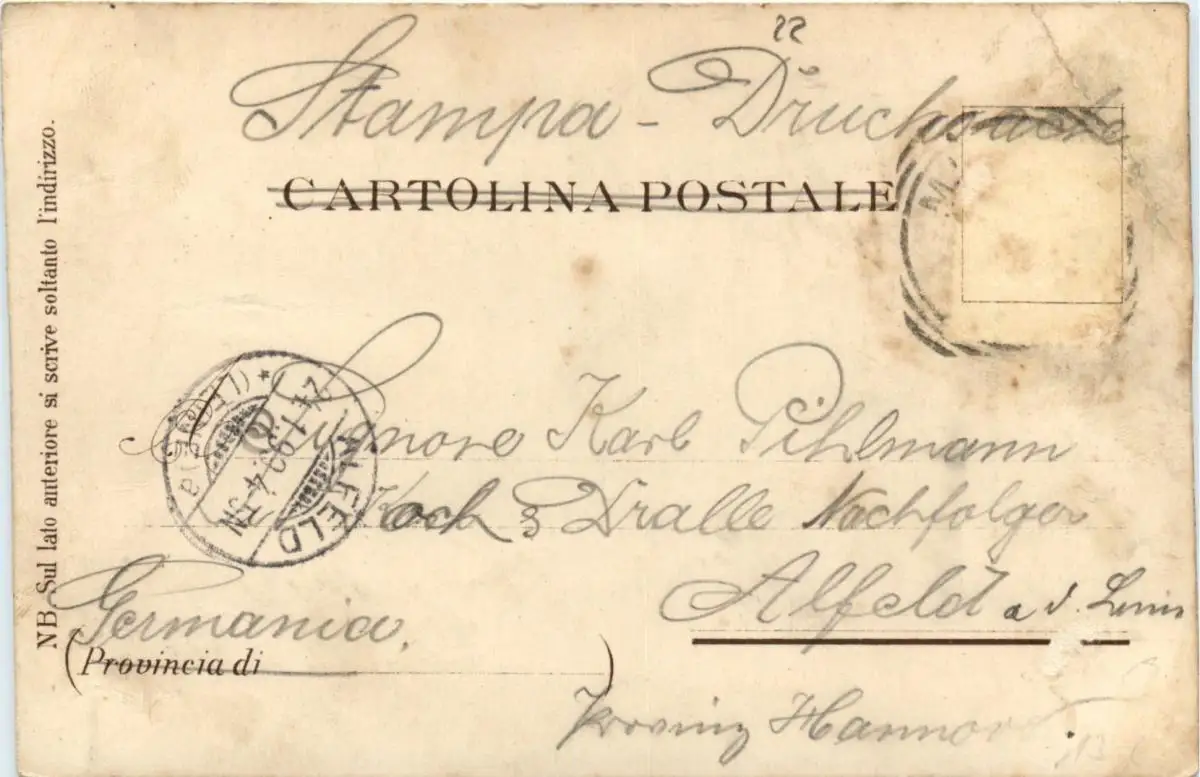 22
Stampa - Drucksache
CARTOLINA POSTALE
M
NB. Sul lato anteriore si scrive soltanto l'indirizzo.
Signore Karl Pihlmann
Koch & Dralle Nachfolger
Alfeld a d. Leine
Germania,
(Provincia di )
Provinz Hannover
ALFELD (LEINE)
4-5N